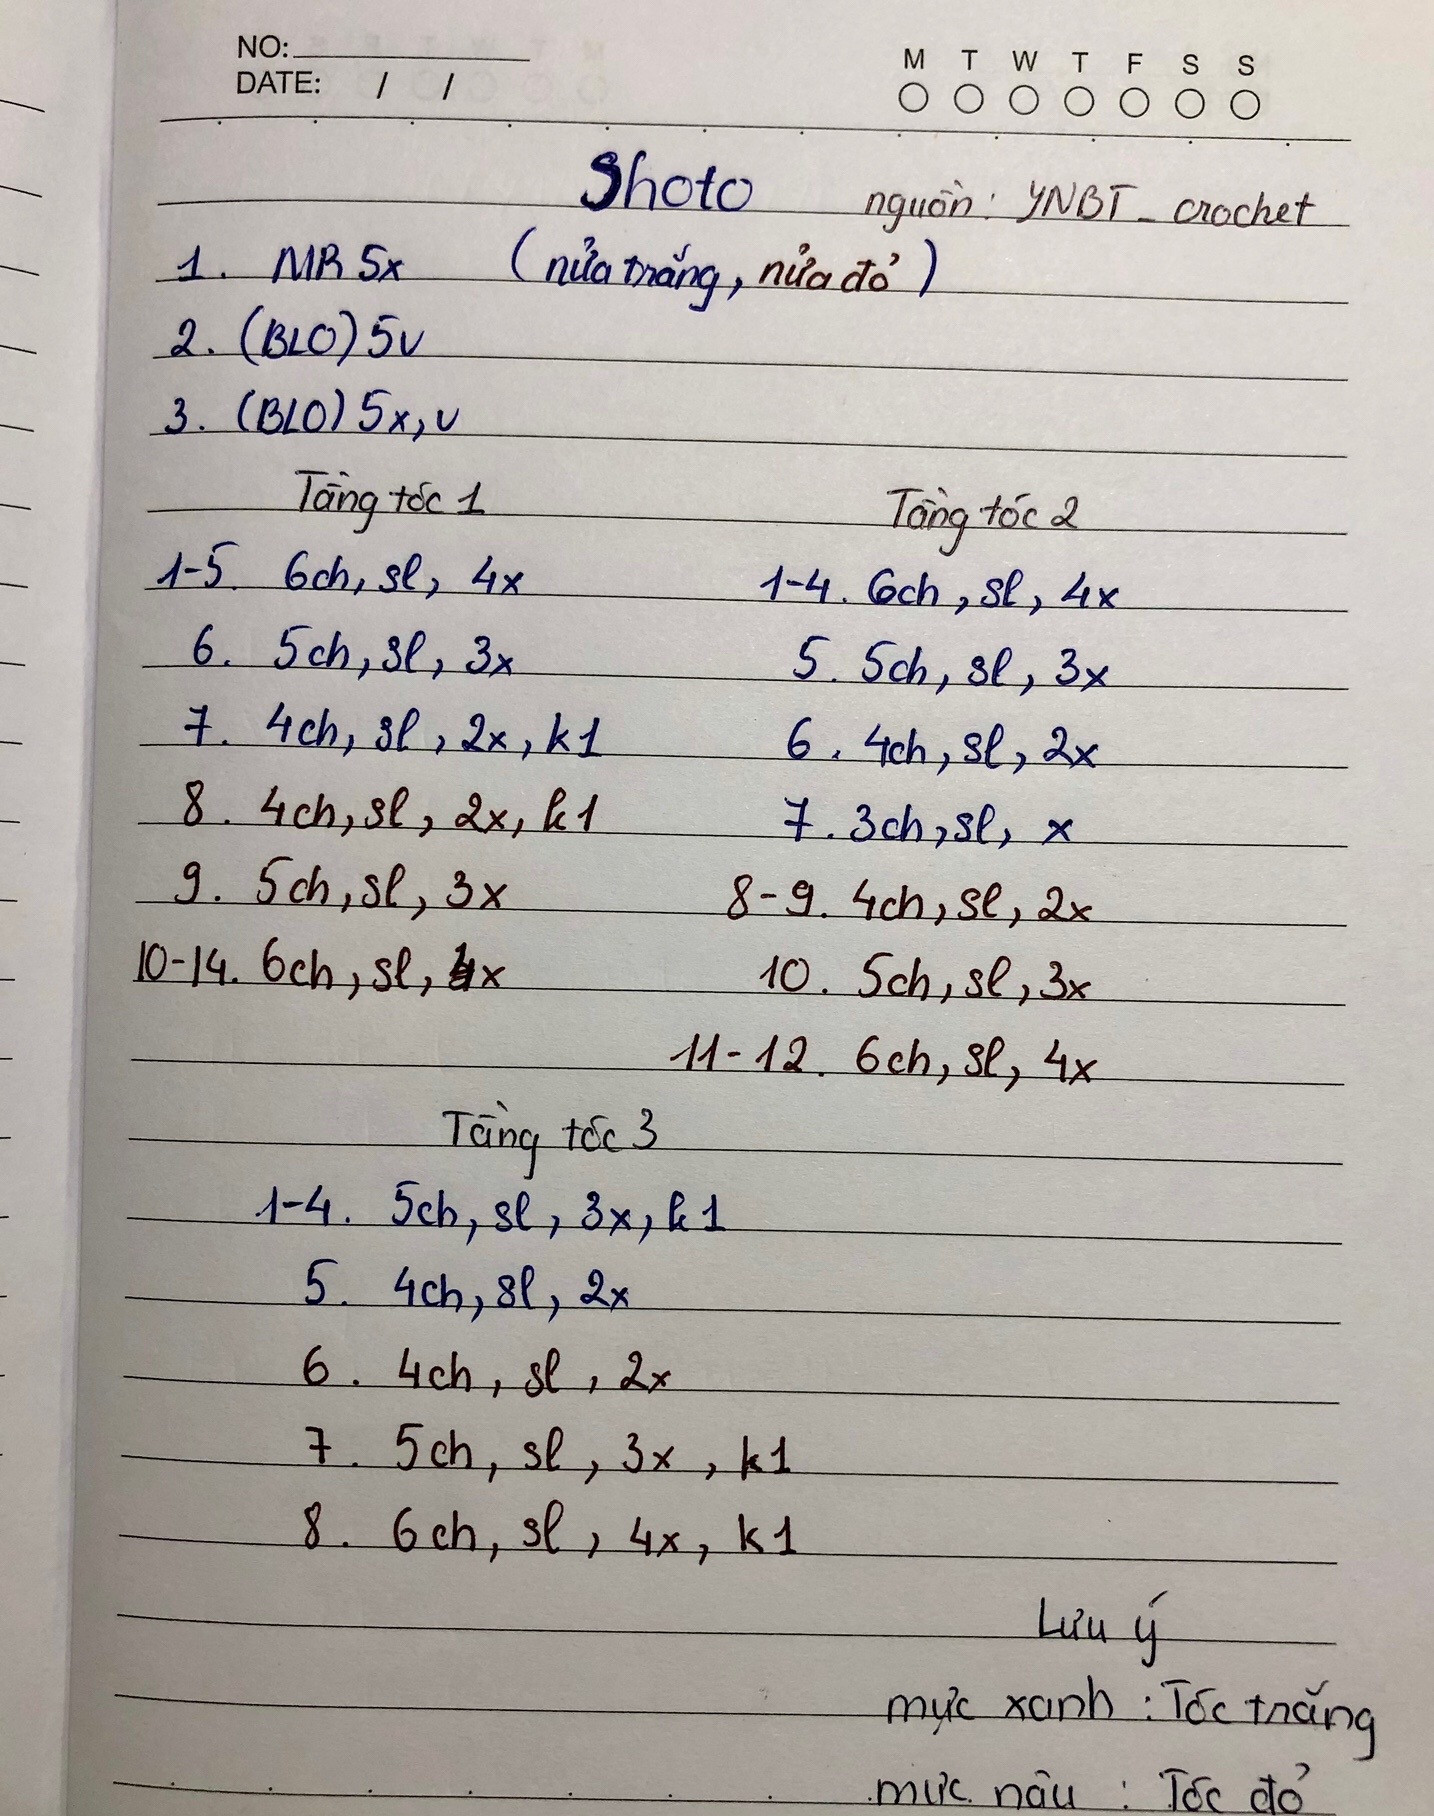 NO:
DATE: / /
M T W T F S S
Shoto nguồn: YNBT_crochet
1. MR 5x (nửa trắng, nửa đỏ)
2. (BLO) 5v
3. (BLO) 5x, v
Tầng tóc 1
1-5. 6ch, sl, 4x
6. 5ch, sl, 3x
7. 4ch, sl, 2x, k1
8. 4ch, sl, 2x, k1
9. 5ch, sl, 3x
10-14. 6ch, sl, 4x
Tầng tóc 2
1-4. 6ch, sl, 4x
5. 5ch, sl, 3x
6. 4ch, sl, 2x
7. 3ch, sl, x
8-9. 4ch, sl, 2x
10. 5ch, sl, 3x
11-12. 6ch, sl, 4x
Tầng tóc 3
1-4. 5ch, sl, 3x, k1
5. 4ch, sl, 2x
6. 4ch, sl, 2x
7. 5ch, sl, 3x, k1
8. 6ch, sl, 4x, k1
Lưu ý
mực xanh : Tóc trắng
mực nâu : Tóc đỏ